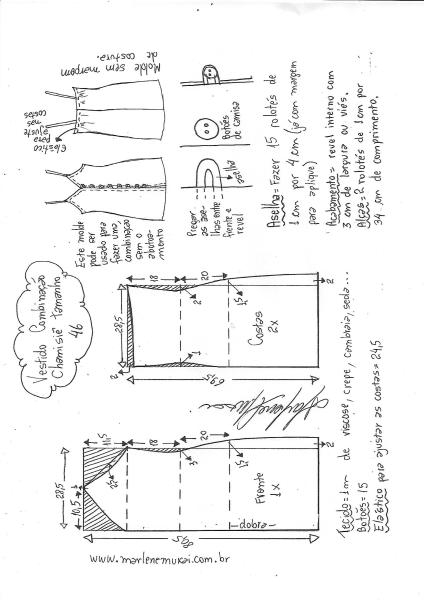 Vestido Combinação
Chamisiê Tamanho
46
Este molde
pode ser
usado para
fazer uma
combinação
sem o
abotoa-
mento
Elástico
para
ajuste
nas
costas
Molde sem margem
de costura.
Pregar
as ase-
lhas entre
frente e
revel
aselha
Botões
de camisa
Aselha = Fazer 15 rolotês de
1 cm por 4 cm (já com margem
para aplique)
Acabamento = revel interno com
3 cm de largura ou viés.
Alças = 2 rolotês de 1 cm por
34 cm de comprimento.
28,5
10,5
18
20
3
1,5
2
Frente
1x
dobra
28,5
2
18
20
1
2
1,5
2
Costas
2x
www.marlenemukai.com.br
Tecido = 1m de viscose, crepe, cambraia, seda...
Botões = 15
Elástico para ajustar as costas = 24,5